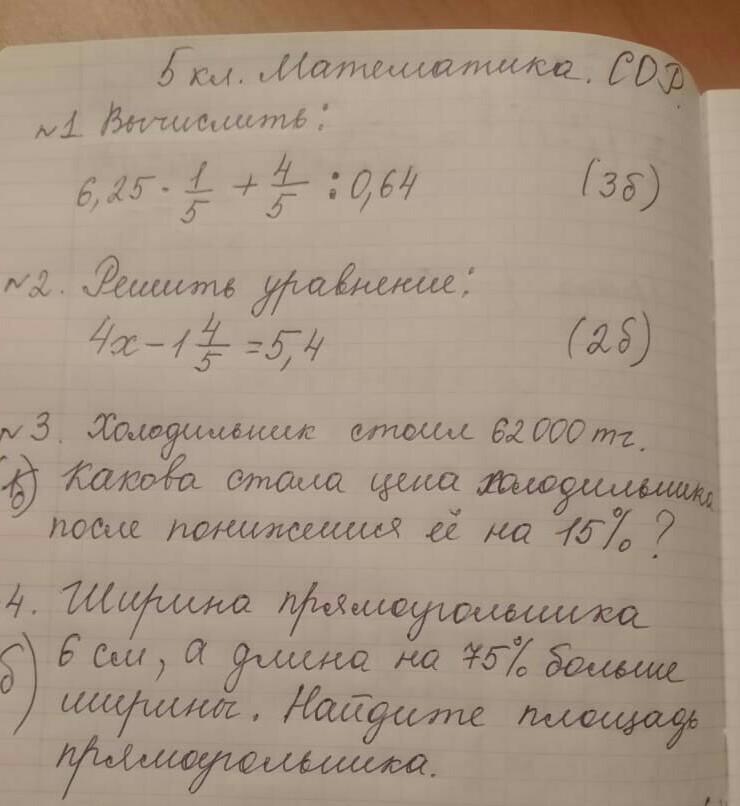 5 кл. Математика. СОР.
№1 Вычислить:
6,25 · 1/5 + 4/5 : 0,64 (3б)
№2. Решить уравнение:
4x - 1 4/5 = 5,4 (2б)
№3. Холодильник стоил 62000 тг.
Какова стала цена холодильника
после понижения её на 15%?
4. Ширина прямоугольника
б) 6 см, а длина на 75% больше
ширины. Найдите площадь
прямоугольника.